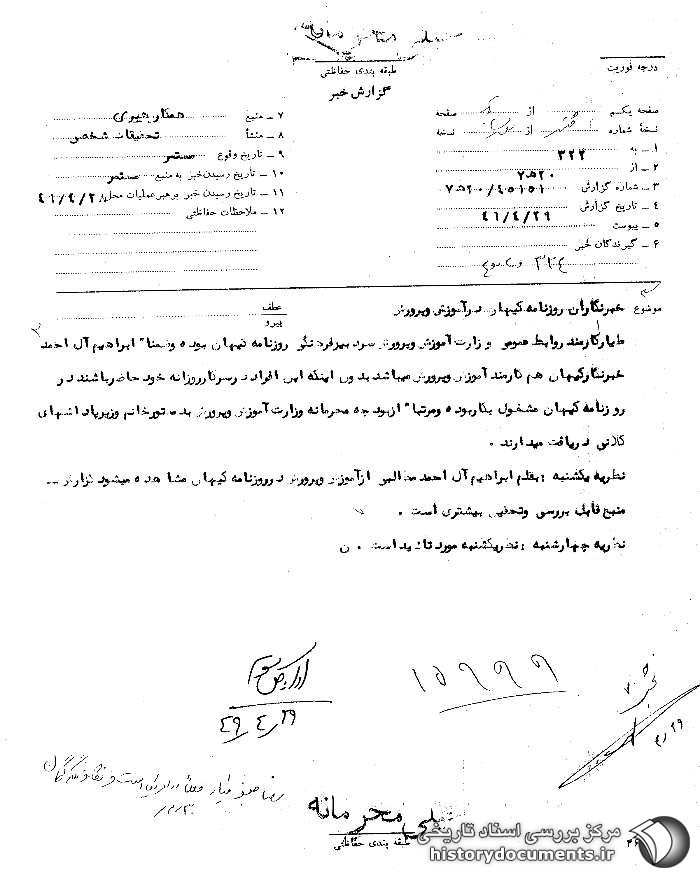 طبقه بندی حفاظتی
گزارش خبر
درجه فوریت
صفحه یکم از صفحه
نسخهٔ شماره از نسخه
۱ ـ به ۳۲۲
۲ ـ از ۷ھ۲۰
۳ ـ شماره گزارش ۷ھ۲۰/۴۵۱۵۱
۴ ـ تاریخ گزارش ۴۶/۴/۲۹
۵ ـ پیوست
۶ ـ گیرندگان خبر
۷ ـ منبع همکار هیری
۸ ـ منشأ تحقیقات شخصی
۹ ـ تاریخ وقوع مستمر
۱۰ ـ تاریخ رسیدن خبر به منبع مستمر
۱۱ ـ تاریخ رسیدن خبر برهبر عملیات محل ۴۶/۴/۲۸
۱۲ ـ ملاحظات حفاظتی
موضوع خبرنگاران روزنامه کیهان در آموزش وپرورش
عطف
پیرو
کارمند روابط عمومی وزارت آموزش وپرورش روزنامه کیهان بوده وضمنا" ابراهیم آل احمد
خبرنگار کیهان هم کارمند آموزش وپرورش میباشد بدون اینکه این افراد در سر کار روزانه خود حاضر باشند در
روزنامه کیهان مشغول بکار بوده ومرتبا" از بودجه محرمانه وزارت آموزش وپرورش بدستور خانم وزیر پاداشهای
کلانی دریافت میدارند .
نظریه یکشنبه : بقلم ابراهیم آل احمد مطالبی از آموزش وپرورش در روزنامه کیهان مشاهده میشود گزارش ــ
منبع قابل بررسی وتحقیق بیشتری است .
نظریه چهارشنبه : نظر یکشنبه مورد تائید است . ن
۱۵۹۹۹
۴/۲۹
خیلی محرمانه
طبقه بندی حفاظتی
مرکز بررسی اسناد تاریخی
historydocuments.ir